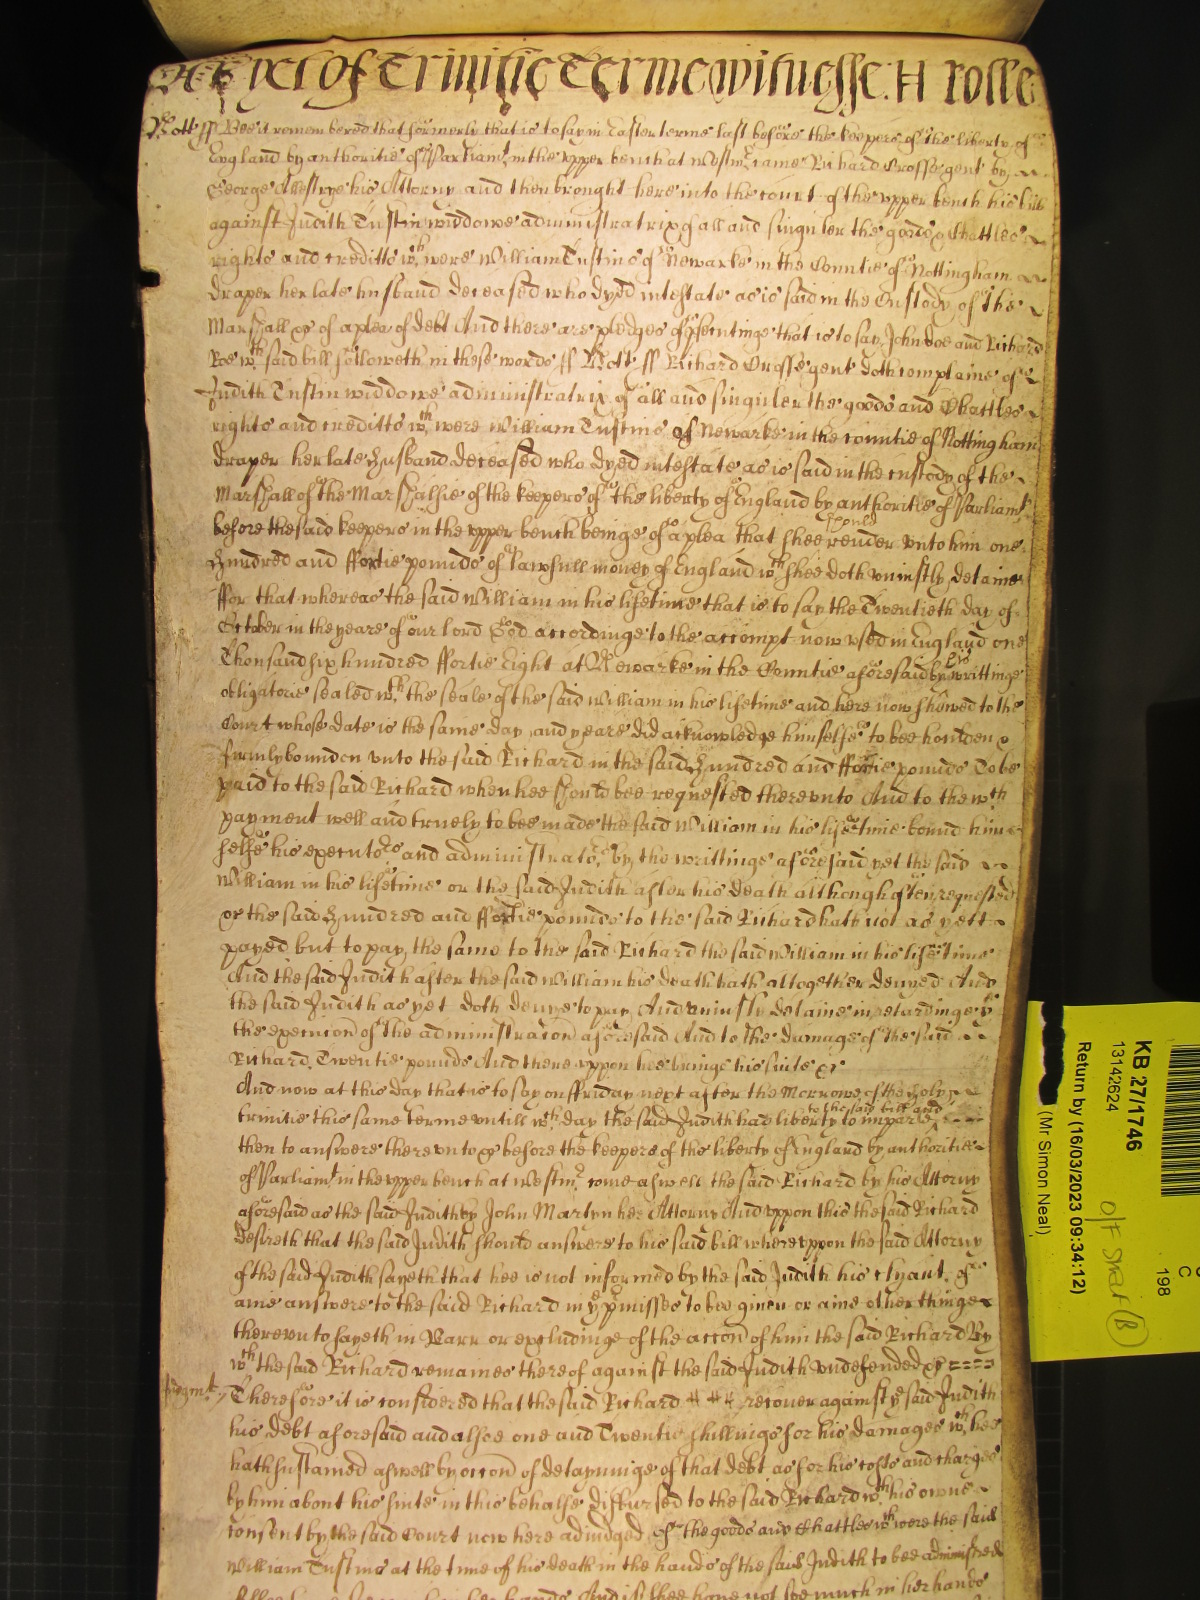 As yet of Trinitie Terme witnesse H Rolle
Nott ss Bee it remembred that formerly that is to say in Easter terme last before the keepers of the liberty of
England by authoritie of Parliamt in the upper bench at Westmr came Richard Crosse gent by
George Allestrye his Attorny and then brought here into the court of the upper bench his bill
against Judith Tustin widdowe administratrix of all and singuler the goods & Chattles
rights and creditts wch were William Tustins of Newarke in the Countie of Nottingham
draper her late husband deceased who dyed intestate as is said in the Custody of the
Marshall &c of a plea of debt And there are pledges of psecutinge that is to say John doe and Richard
Roe wch said bill followeth in these words ss Nott ss Richard Crosse gent doth complaine of
Judith Tustin widdowe administratrix of all and singuler the goods and Chattles
rights and creditts wch were William Tustins of Newarke in the countie of Nottingham
draper her late husband deceased who dyed intestate as is said in the custody of the
Marshall of the Marshalsie of the keepers of the liberty of England by authoritie of Parliamt
before the said keepers in the upper bench beinge of a plea that shee should render unto him one
hundred and ffortie pounds of lawfull money of England wch shee doth uniustly detaine
ffor that whereas the said William in his lifetime that is to say the Twentieth day of
October in the yeare of our lord God accordinge to the accompt now used in England one
Thousand six hundred ffortie Eight at Newarke in the Countie aforesaid by his writtinge
obligatorie sealed wth the seale of the said William in his lifetime and here now shewed to the
Court whose date is the same day and yeare did acknowledge himselfe to bee houlden &
firmly bounden unto the said Richard in the said hundred and ffortie pounds To be
paid to the said Richard when hee should bee requested thereunto And to the wch
payment well and truely to bee made the said William in his lifetime bound him
selfe his executors and administrators by the writtinge aforesaid yet the said
William in his lifetime or the said Judith after his death although often requested
&c the said hundred and ffortie pounds to the said Richard hath not as yett
payed but to pay the same to the said Richard the said William in his life time
And the said Judith after the said William his death hath altogether denyed And
the said Judith as yet doth denye to pay And uniustly detaine in retardinge ye
the execucon of the administracon aforesaid And to the damage of the said
Richard Twentie pounds And thereuppon hee bringe his suite &c
And now at this day that is to say on ffriday next after the Morrowe of the holy
trinitie this same terme untill wch day the said Judith had liberty to the said bill and to imparle
then to answere thereunto &c before the keepers of the liberty of England by authoritie
of Parliamt in the upper bench at Westmr come aswell the said Richard by his Attorny
aforesaid as the said Judith by John Martyn her Attorny And uppon this the said Richard
desireth that the said Judith should answere to his said bill whereuppon the said Attorny
of the said Judith sayeth that hee is not informed by the said Judith his clyant of
anie answere to the said Richard in ye pmisses to bee given or anie other thinge
thereunto sayeth in Barr or excludinge of the accon of him the said Richard By
wch the said Richard remaines thereof against the said Judith undefended &c
Judgmt Therefore it is considered that the said Richard recover against ye said Judith
his debt aforesaid and alsoe one and Twentie shillings for his damages wch hee
hath sustained aswell by occon of detayninge of that debt as for his costs and charges
by him about his suite in this behalfe disbursed to the said Richard wth his owne
consent by the said Court now here adiudged of the goods and Chattles wch were the said
William Tustins at the time of his death in the hands of the said Judith to bee administred
And if shee have not soe much in her hands
KB 27/1746
13142624
Return by (16/03/2023 09:34:12)
(Mr Simon Neal)
C
198